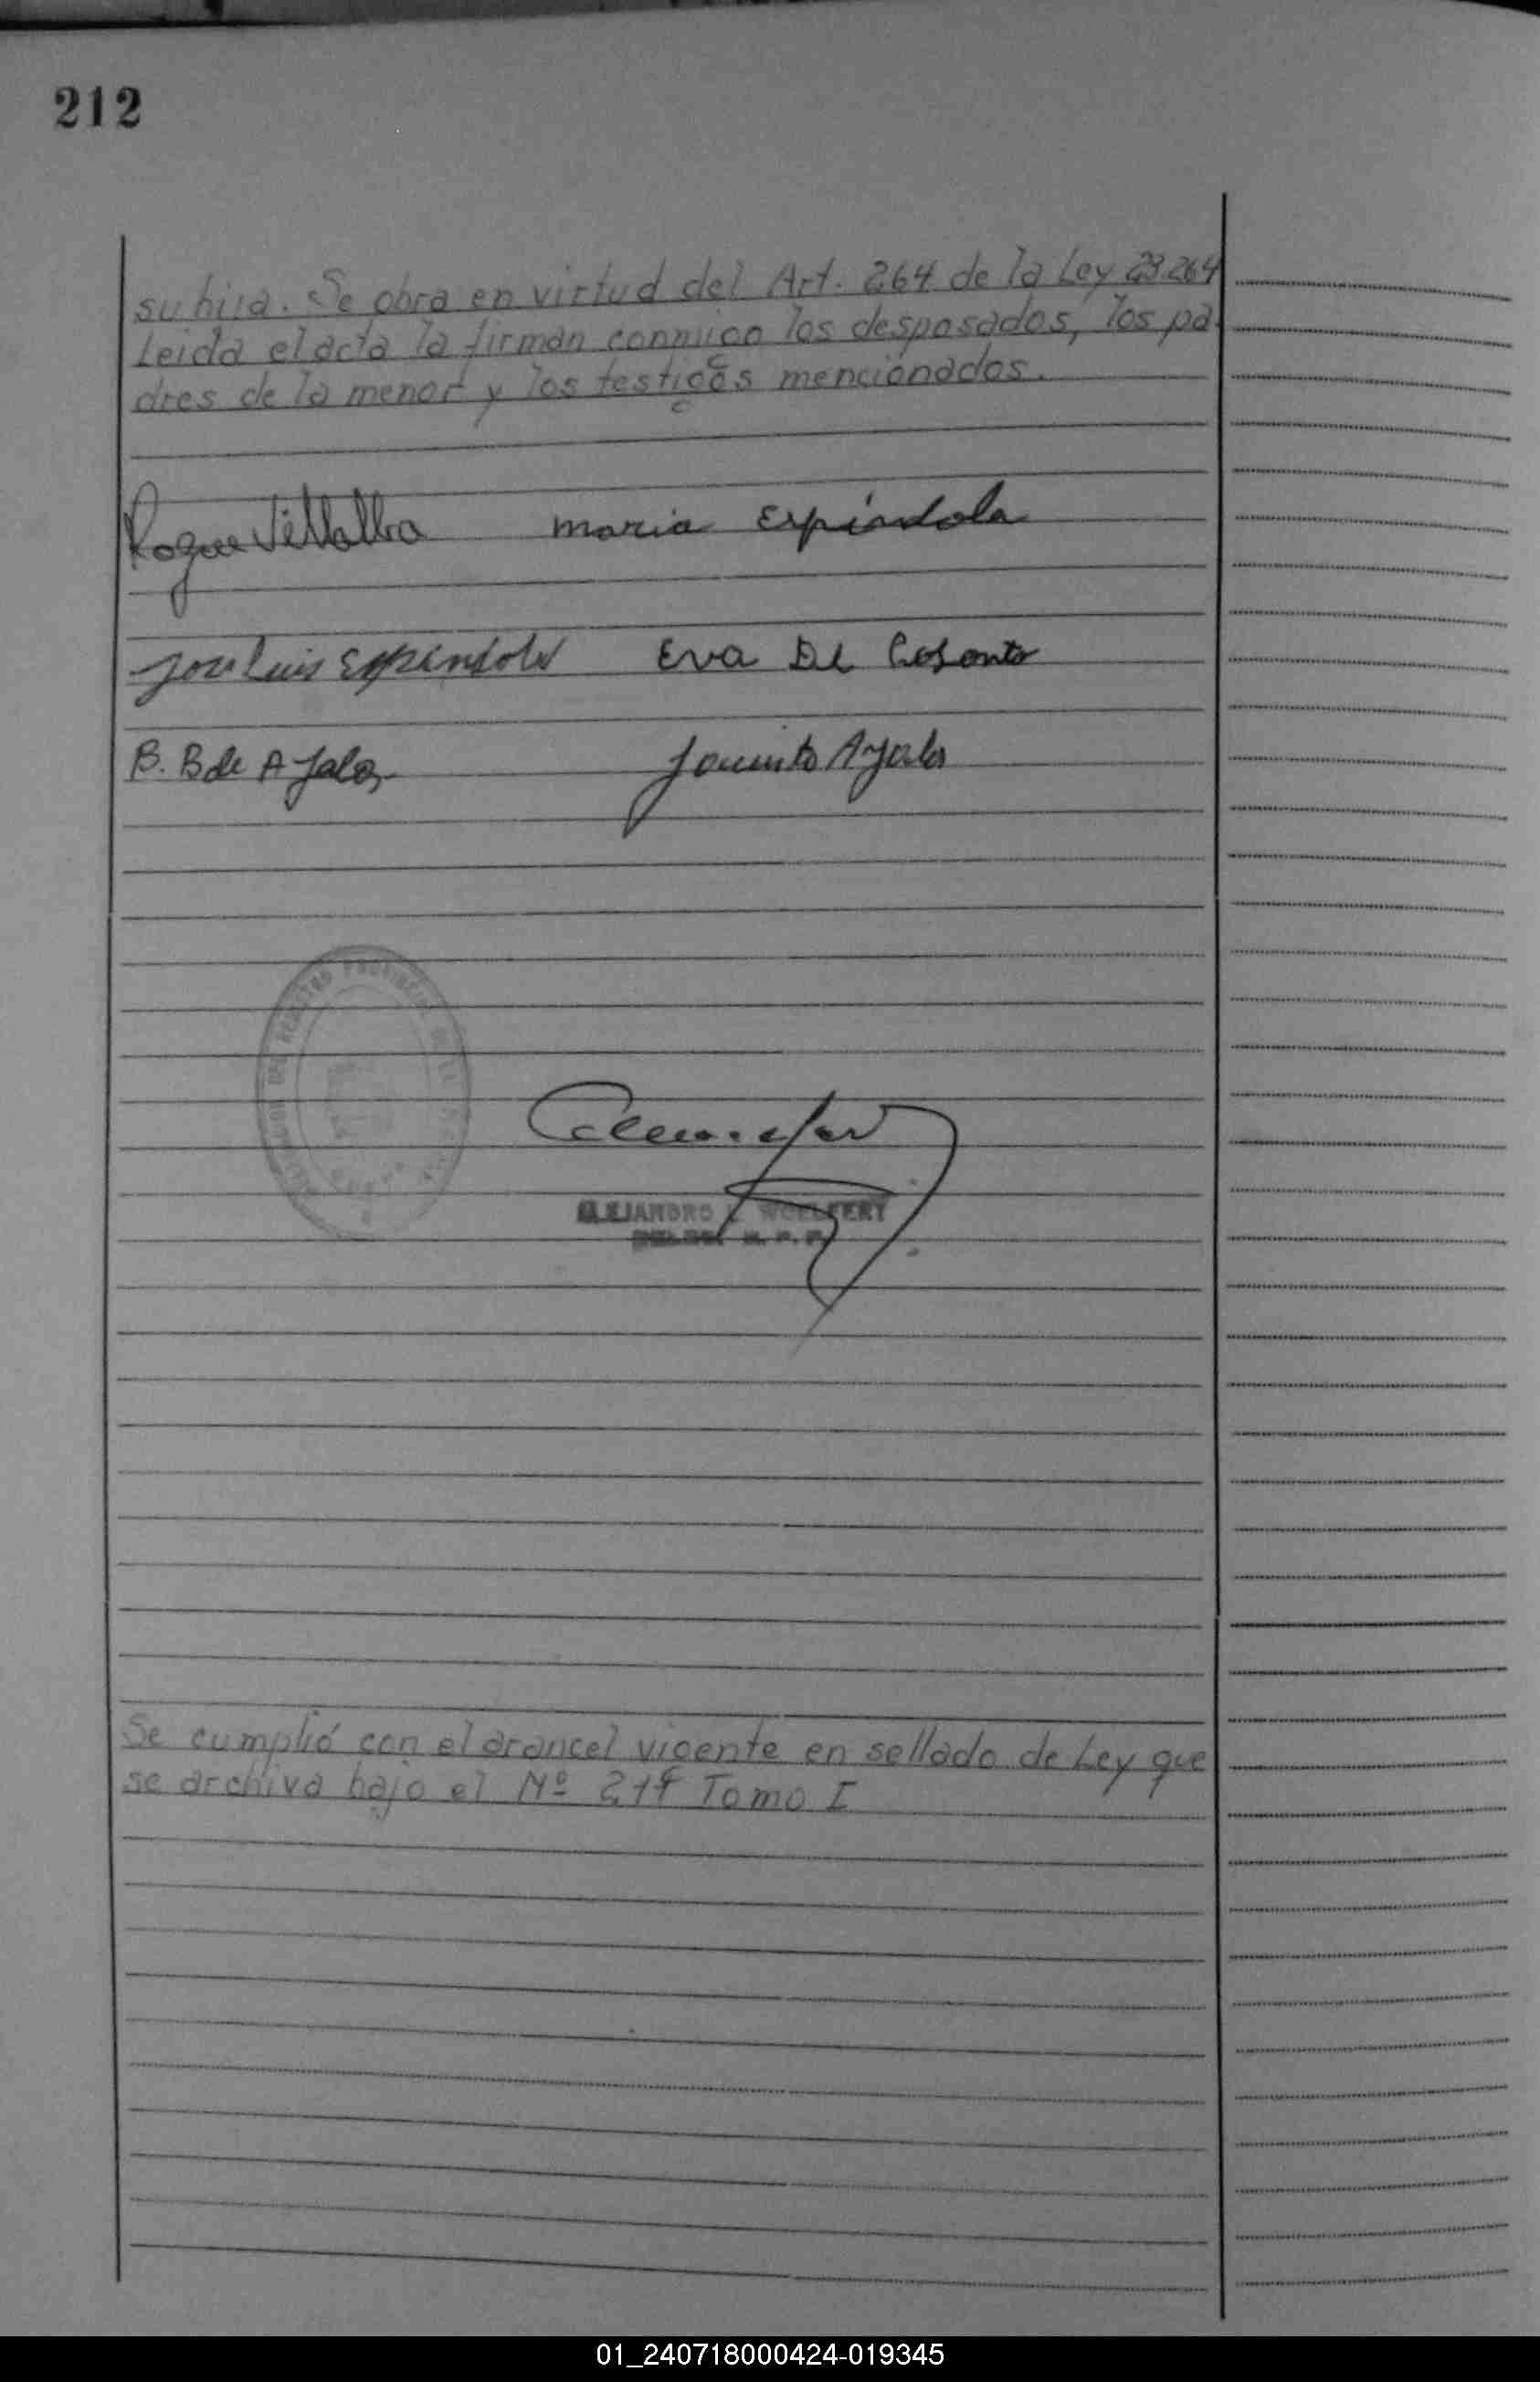 212
su hija. Se obra en virtud del Art. 264 de la Ley 23.264
Leida el acta la firman conmigo los desposados, los pa-
dres de la menor y los testigos mencionados.
Roque Villalba maria Espindola
Jose Luis Espindola Eva De
B. B de Ayala Jacinto Ayala
DEL REGISTRO PROVINCIAL DE LAS
ALEJANDRO L. WOELFERT
R. P. P.
Se cumplió con el arancel vigente en sellado de Ley que
se archiva bajo el Nº Tomo I
01_240718000424-019345